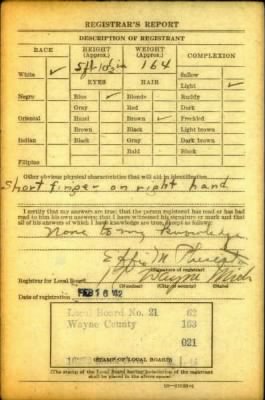 REGISTRAR'S REPORT
DESCRIPTION OF REGISTRANT
RACE HEIGHT (Approx.) WEIGHT (Approx.) COMPLEXION
5 ft 10½ in 164
White ✓ EYES HAIR
Sallow
Light ✓
Negro Blue ✓ Blonde Ruddy
Gray Red Dark
Oriental Hazel Brown ✓ Freckled
Brown Black Light brown
Indian Black Gray Dark brown
Bald Black
Filipino
Other obvious physical characteristics that will aid in identification
short finger on right hand
I certify that my answers are true; that the person registered has read or has had
read to him his own answers; that I have witnessed his signature or mark and that
all of his answers of which I have knowledge are true, except as follows:
None to my knowledge
Effie M
(Signature of registrar)
Registrar for Local Board Wayne Mich
(Number) (City or county) (State)
Date of registration FEB 16 '42
Local Board No. 21 62
Wayne County 163
021
(STAMP OF LOCAL BOARD)
(The stamp of the Local Board having jurisdiction of the registrant
shall be placed in the above space)